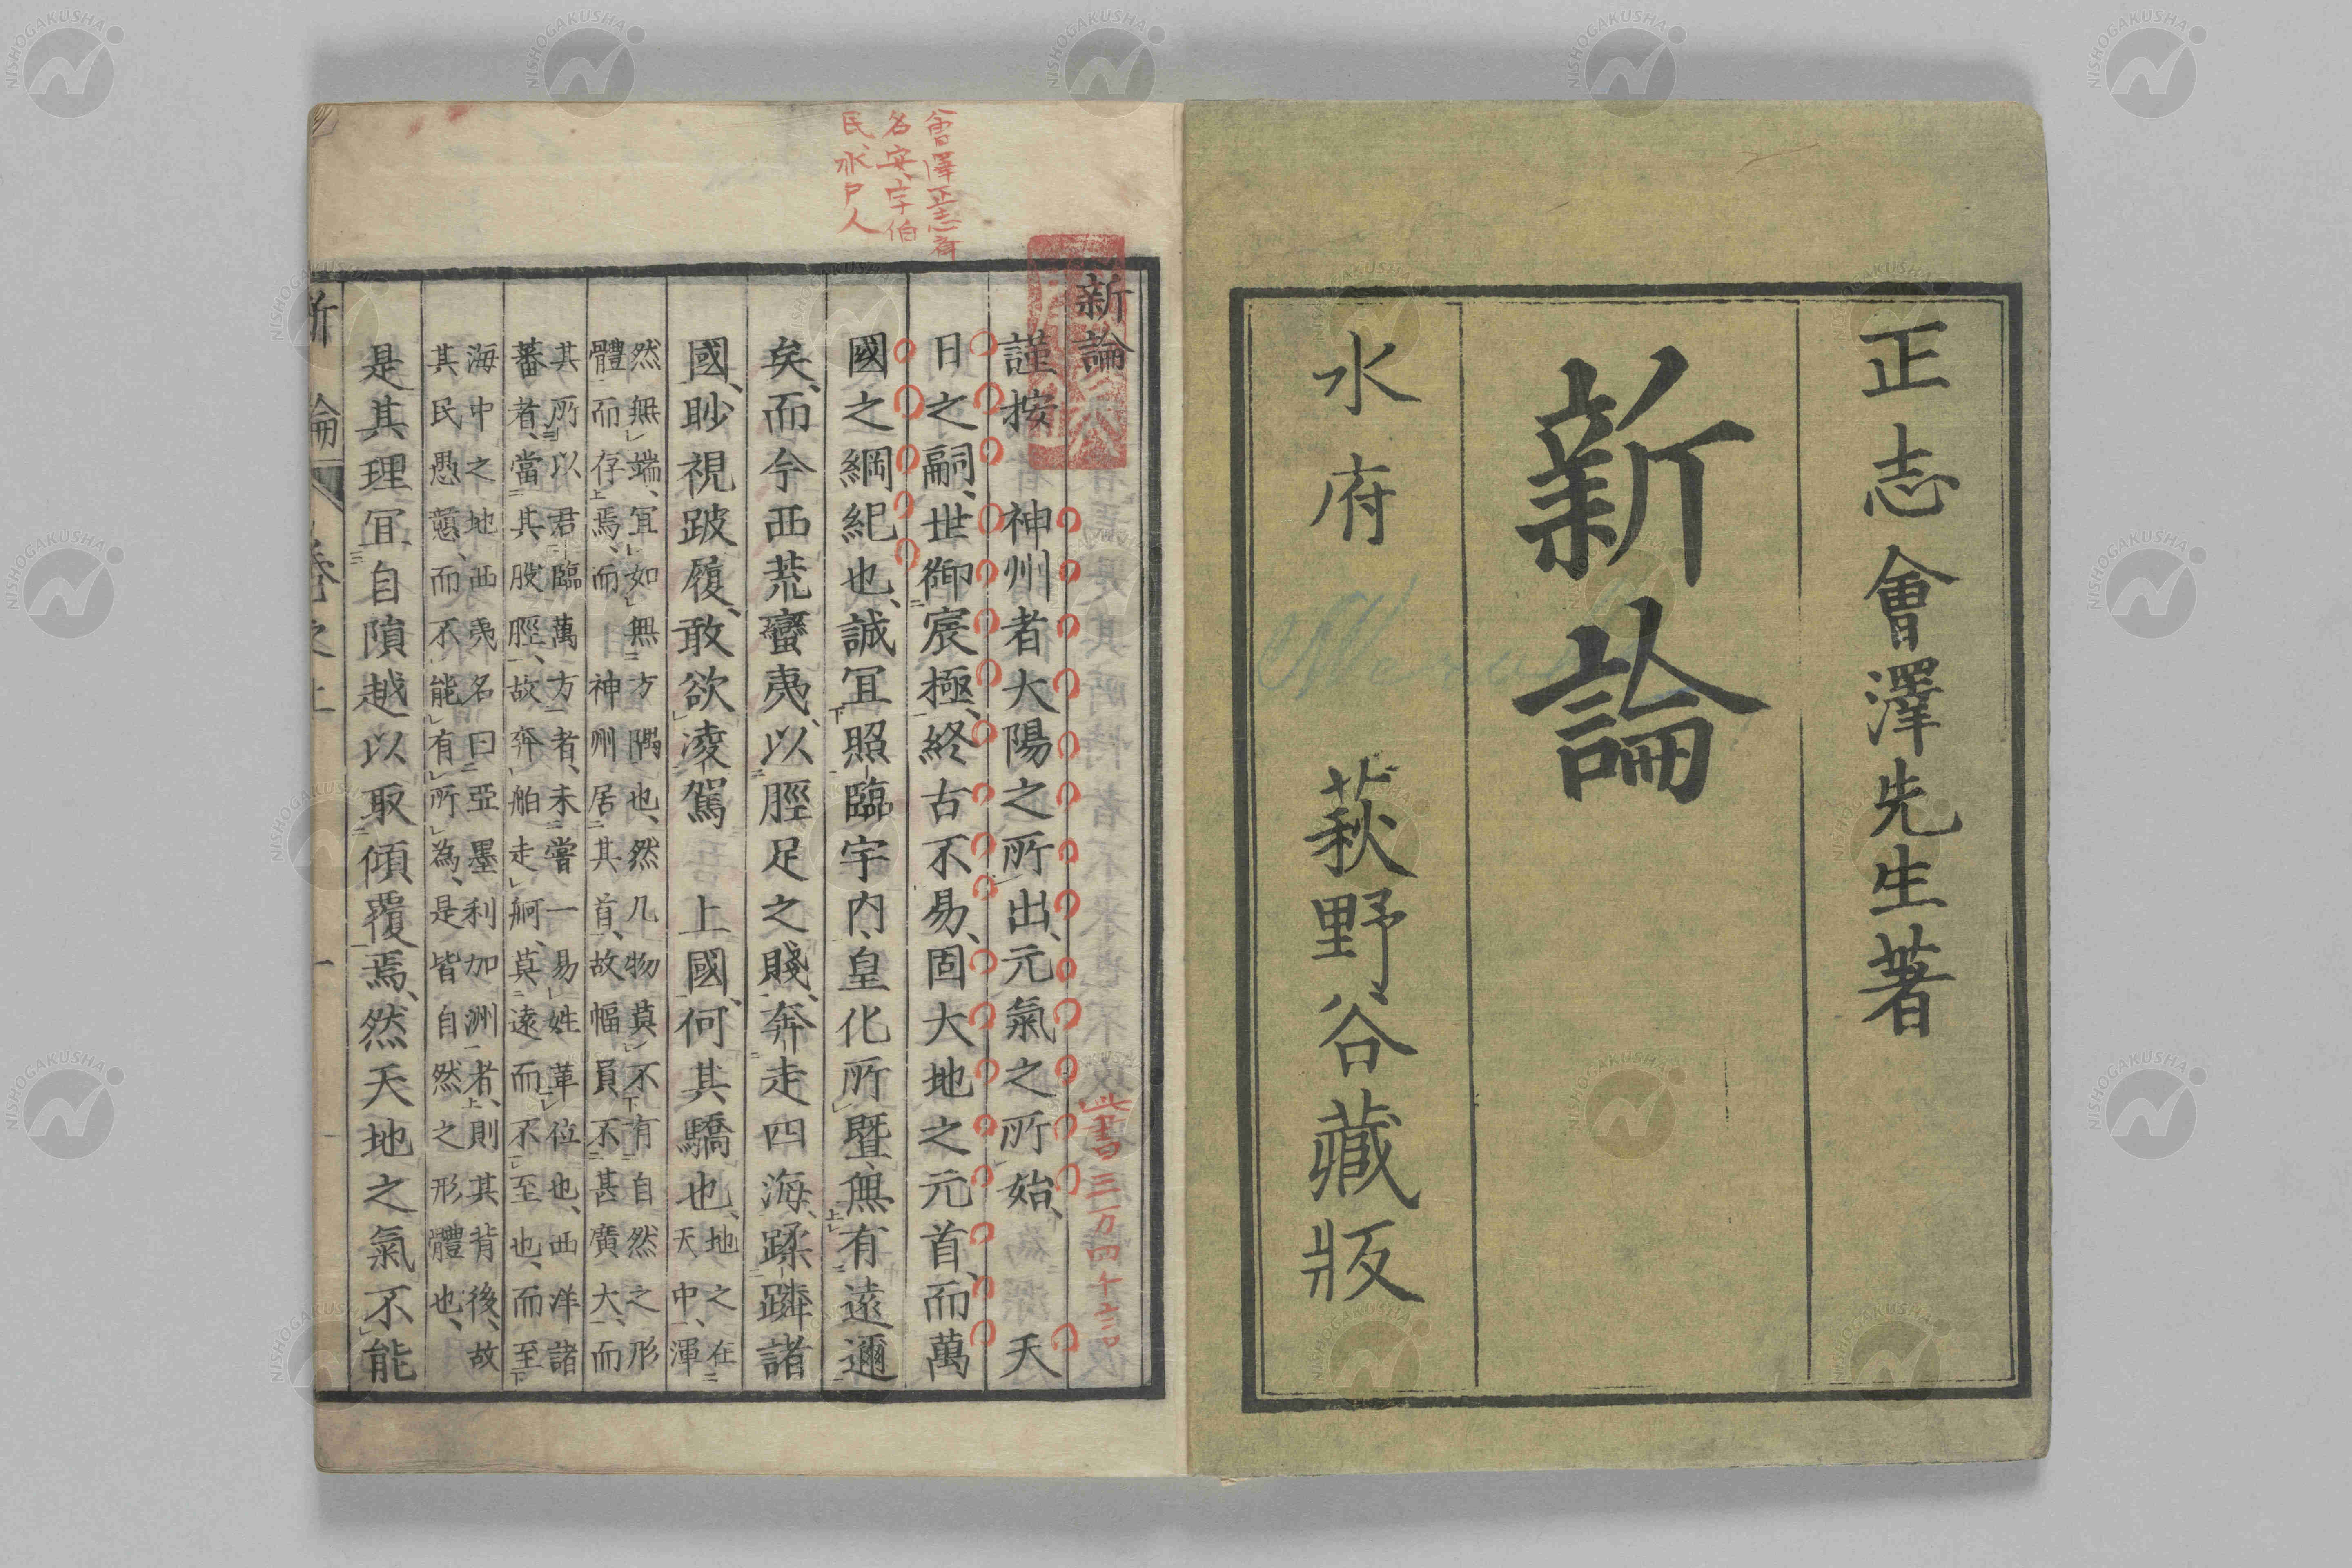 正志會澤先生著
新論
水府　萩野谷藏版
會澤正志齋
名安、字伯
民、水戶人
新論
此書三万四千言
謹按　神州者大陽之所出、元氣之所始、　天
日之嗣、世御宸極、終古不易、固大地之元首、而萬
國之綱紀也、誠冝照臨宇內、皇化所曁、無有遠邇
矣、而今西荒蠻夷、以脛足之賤、奔走四海、蹂躪諸
國、眇視跛履、敢欲凌駕　上國、何其驕也、
地之在
天中、渾
然無端、冝如無方隅也、然凡物莫不有自然之形
體而存焉、而　神州居其首、故幅員不甚廣大、而
其所以君臨萬方者、未嘗一易姓革位也、西洋諸
蕃者、當其股脛、故奔舶走舸、莫遠而不至也、而至
海中之地西夷名曰亞墨利加洲者、則其背後、故
其民愚戇、而不能有所為、是皆自然之形體也、
是其理冝自隕越以取傾覆焉、然天地之氣不能
新論　卷之上　一
NISHOGAKUSHA